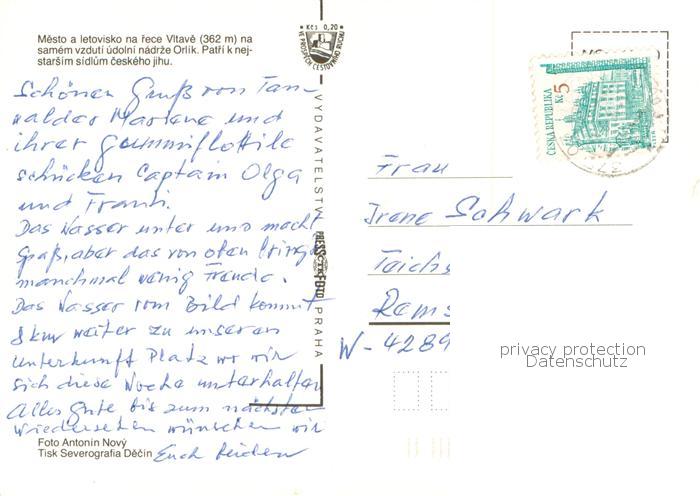 Město a letovisko na řece Vltavě (362 m) na
samém vzdutí údolní nádrže Orlík. Patří k nej-
starším sídlům českého jihu.
Schönen Gruß von Tan-
walder Marlene und
ihrer Gummiflottile
schicken Captain Olga
und Franti.
Das Wasser unter uns macht
Spaß, aber das von oben bringt
manchmal wenig Freude.
Das Wasser vom Bild kommt
8 km weiter zu unseren
Unterkunft Platz wo wir
sich diese Woche unterhalten
Alles Gute bis zum nächsten
Wiedersehen wünschen wir
Euch beiden
Foto Antonín Nový
Tisk Severografia Děčín
Kčs 0,20
VE PROSPĚCH CESTOVNÍHO RUCHU
VYDAVATELSTVÍ PRESSFOTO PRAHA
ČESKÁ REPUBLIKA
Kč 5
Frau
Irene Schwark
Teichs
Rams
W-4289
privacy protection
Datenschutz